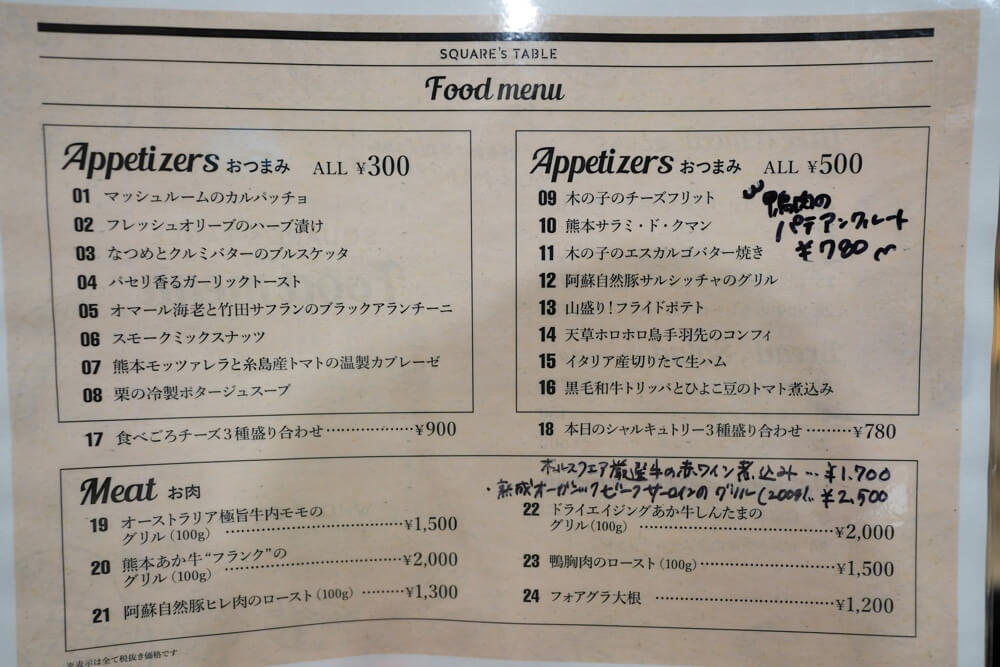 SQUARE's TABLE
Food menu
Appetizers おつまみ ALL ¥300
01 マッシュルームのカルパッチョ
02 フレッシュオリーブのハーブ漬け
03 なつめとクルミバターのブルスケッタ
04 パセリ香るガーリックトースト
05 オマール海老と竹田サフランのブラックアランチーニ
06 スモークミックスナッツ
07 熊本モッツァレラと糸島産トマトの温製カプレーゼ
08 栗の冷製ポタージュスープ
17 食べごろチーズ3種盛り合わせ ¥900
Appetizers おつまみ ALL ¥500
09 木の子のチーズフリット
10 熊本サラミ・ド・クマン
11 木の子のエスカルゴバター焼き
12 阿蘇自然豚サルシッチャのグリル
13 山盛り！フライドポテト
14 天草ホロホロ鳥手羽先のコンフィ
15 イタリア産切りたて生ハム
16 黒毛和牛トリッパとひよこ豆のトマト煮込み
鴨肉の
パテアンクルート
¥780
18 本日のシャルキュトリー3種盛り合わせ ¥780
Meat お肉
19 オーストラリア極旨牛内モモの
グリル（100g） ¥1,500
20 熊本あか牛“フランク”の
グリル（100g） ¥2,000
21 阿蘇自然豚ヒレ肉のロースト（100g） ¥1,300
厳選牛の赤ワイン煮込み … ¥1,700
・熟成オーガニックビーフサーロインのグリル（200g）… ¥2,500
22 ドライエイジングあか牛しんたまの
グリル（100g） ¥2,000
23 鴨胸肉のロースト（100g） ¥1,500
24 フォアグラ大根 ¥1,200
※表示は全て税抜き価格です